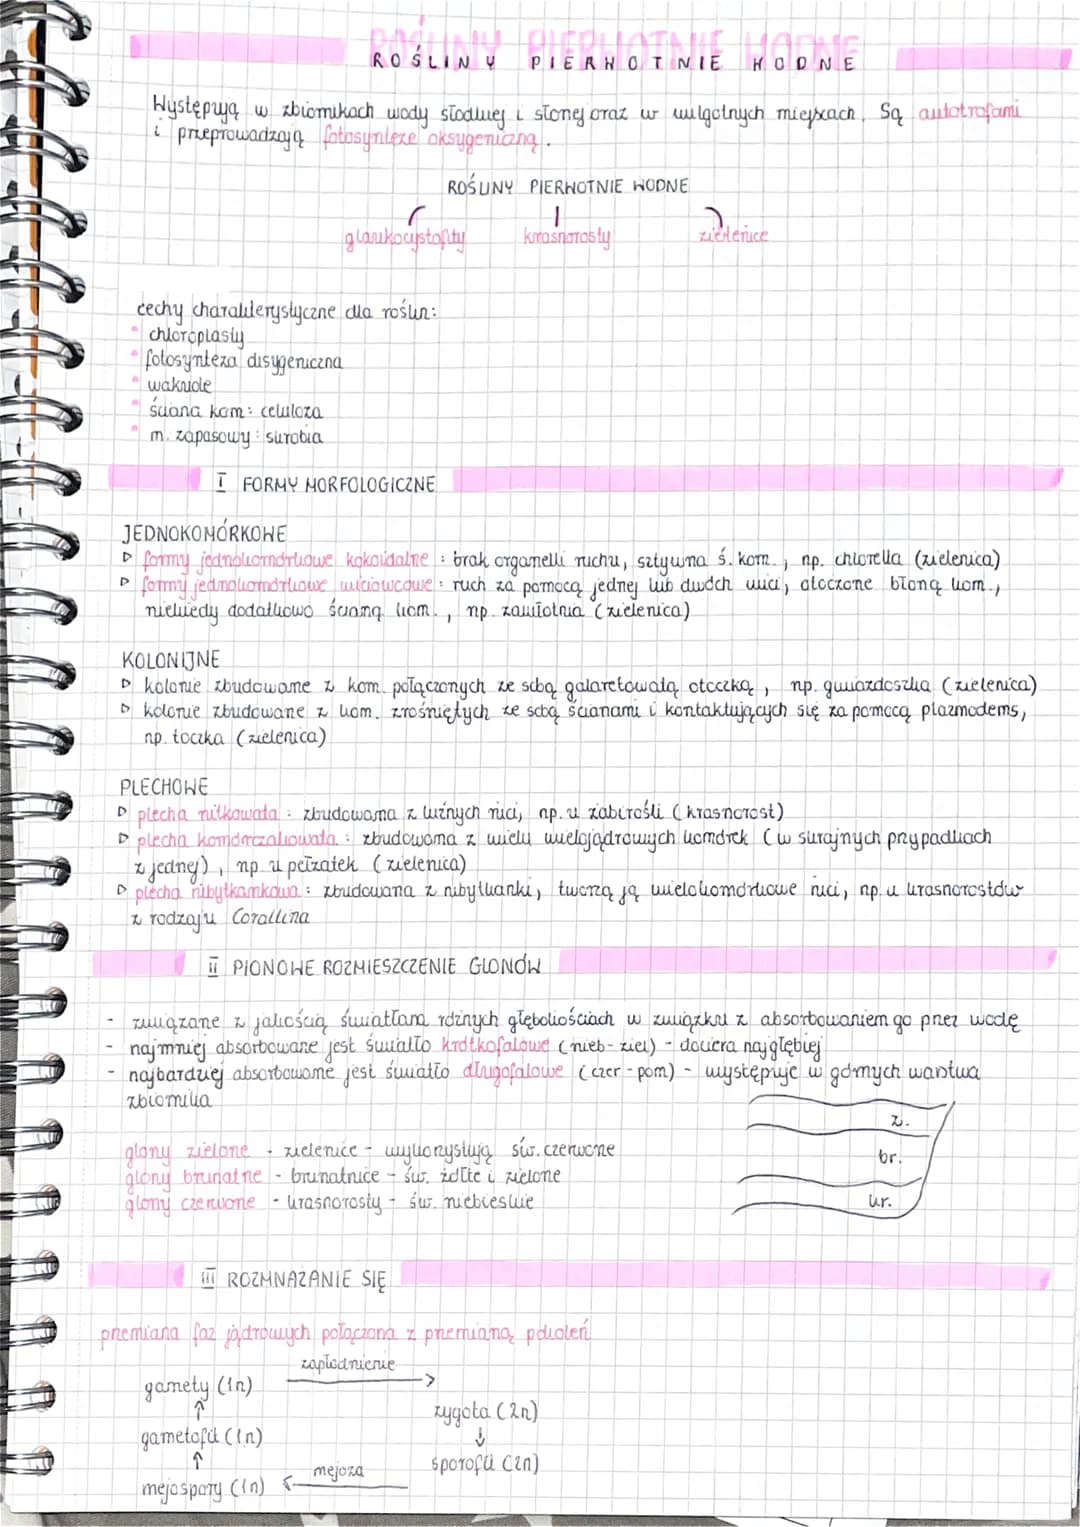 ROŚLINY PIERWOTNIE WODNE
Występują w zbiornikach wody słodkiej i słonej oraz w wilgotnych miejscach. Są autotrofami
i przeprowadzają fotosyntezę oksygeniczną.
ROŚLINY PIERWOTNIE WODNE
glaukocystofity krasnorosty zielenice
cechy charakterystyczne dla roślin:
chloroplasty
fotosynteza oksygeniczna
wakuole
ściana kom: celuloza
m. zapasowy: skrobia
I FORMY MORFOLOGICZNE
JEDNOKOMÓRKOWE
▷ formy jednokomórkowe kokoidalne: brak organelli ruchu, sztywna ś. kom., np. chlorella (zielenica)
▷ formy jednokomórkowe wiciowcowe: ruch za pomocą jednej lub dwóch wici, otoczone błoną kom.,
niekiedy dodatkowo ścianą kom., np. zawłotnia (zielenica)
KOLONIJNE
▷ kolonie zbudowane z kom. połączonych ze sobą galaretowatą otoczką, np. gwiazdoszka (zielenica)
▷ kolonie zbudowane z kom. zrośniętych ze sobą ścianami i kontaktujących się za pomocą plazmodesm,
np. toczka (zielenica)
PLECHOWE
▷ plecha nitkowata: zbudowana z luźnych nici, np. u żabirośli (krasnorost)
▷ plecha komórczakowata: zbudowana z wielu wielojądrowych komórek (w skrajnych przypadkach
z jednej), np. u pełzatek (zielenica)
▷ plecha nibytkankowa: zbudowana z nibytkanki, tworzą ją wielokomórkowe nici, np. u krasnorostów
z rodzaju Corallina
II PIONOWE ROZMIESZCZENIE GLONÓW
- związane z jakością światła na różnych głębokościach w związku z absorbowaniem go przez wodę
- najmniej absorbowane jest światło krótkofalowe (nieb-ziel) - dociera najgłębiej
- najbardziej absorbowane jest światło długofalowe (czer-pom) - występuje w górnych warstwa
zbiornika
glony zielone - zielenice - wykorzystują św. czerwone
glony brunatne - brunatnice - św. żółte i zielone
glony czerwone - krasnorosty - św. niebieskie
z.
br.
kr.
III ROZMNAŻANIE SIĘ
przemiana faz jądrowych połączona z przemianą pokoleń
zapłodnienie
gamety (1n)
zygota (2n)
gametofit (1n)
sporofit (2n)
mejoza
mejospory (1n)